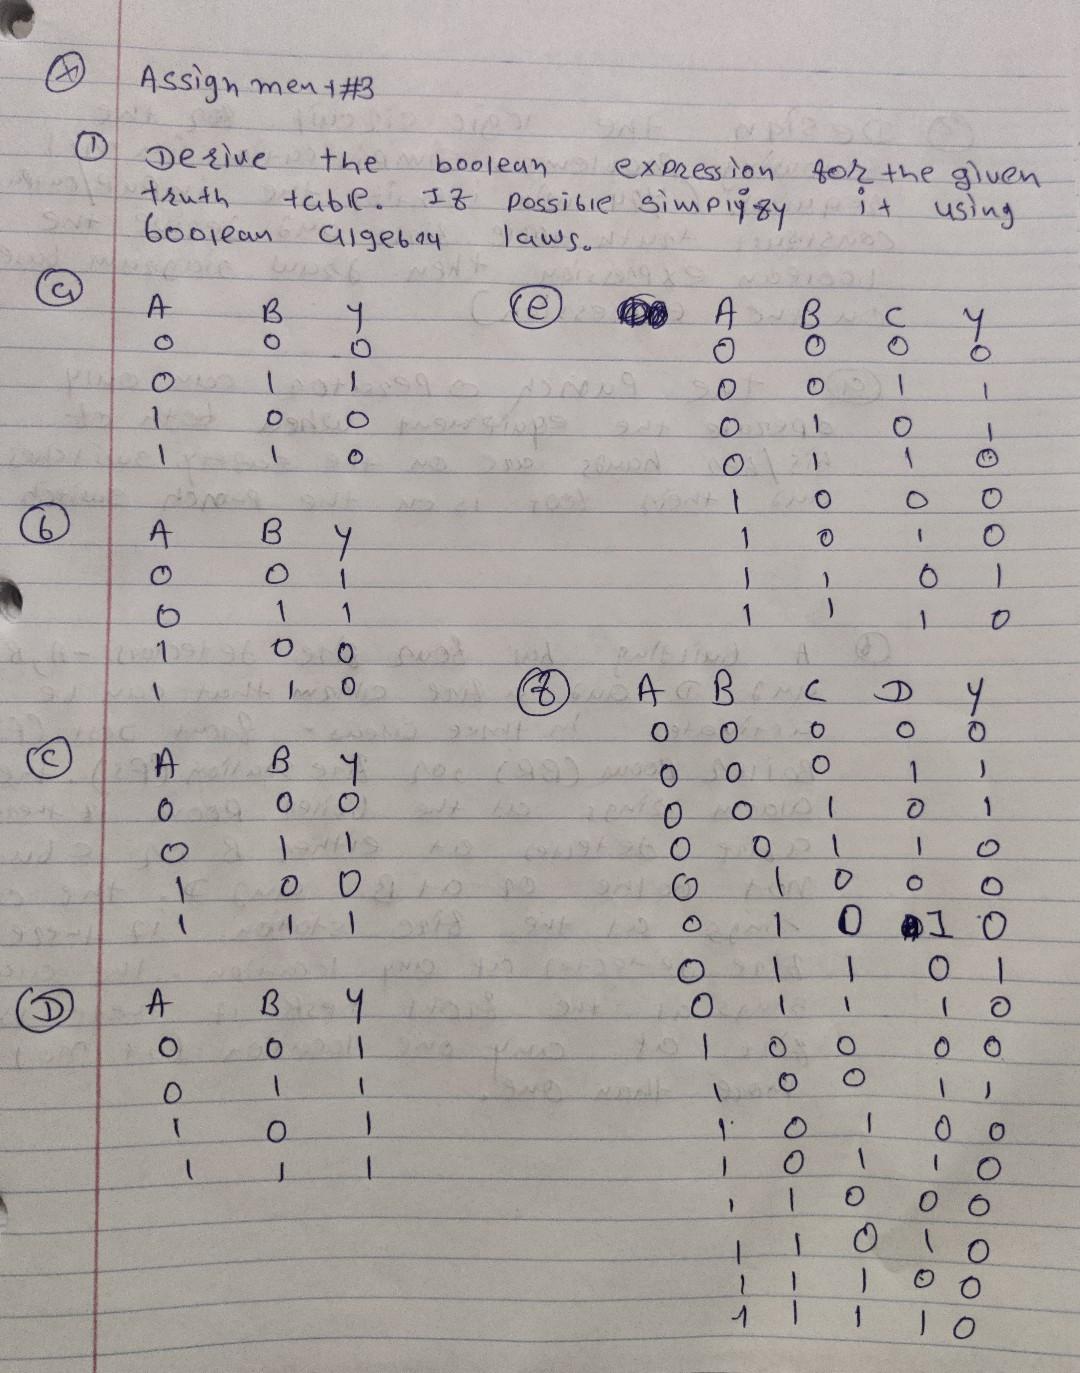 X Assignment #3
① Derive the boolean expression for the given
truth table. If possible simplify it using
boolean algebra laws.
ⓐ
A B Y
0 0 0
0 1 1
1 0 0
1 1 0
ⓑ
A B Y
0 0 1
0 1 1
1 0 0
1 1 0
Ⓒ
A B Y
0 0 0
0 1 1
1 0 0
1 1 1
Ⓓ
A B Y
0 0 1
0 1 1
1 0 1
1 1 1
ⓔ
A B C Y
0 0 0 0
0 0 1 1
0 1 0 1
0 1 1 0
1 0 0 0
1 0 1 0
1 1 0 1
1 1 1 0
ⓕ
A B C D Y
0 0 0 0 0
0 0 0 1 1
0 0 1 0 1
0 0 1 1 0
0 1 0 0 0
0 1 0 1 0
0 1 1 0 1
0 1 1 1 0
1 0 0 0 0
1 0 0 1 1
1 0 1 0 0
1 0 1 1 0
1 1 0 0 0
1 1 0 1 0
1 1 1 0 0
1 1 1 1 0